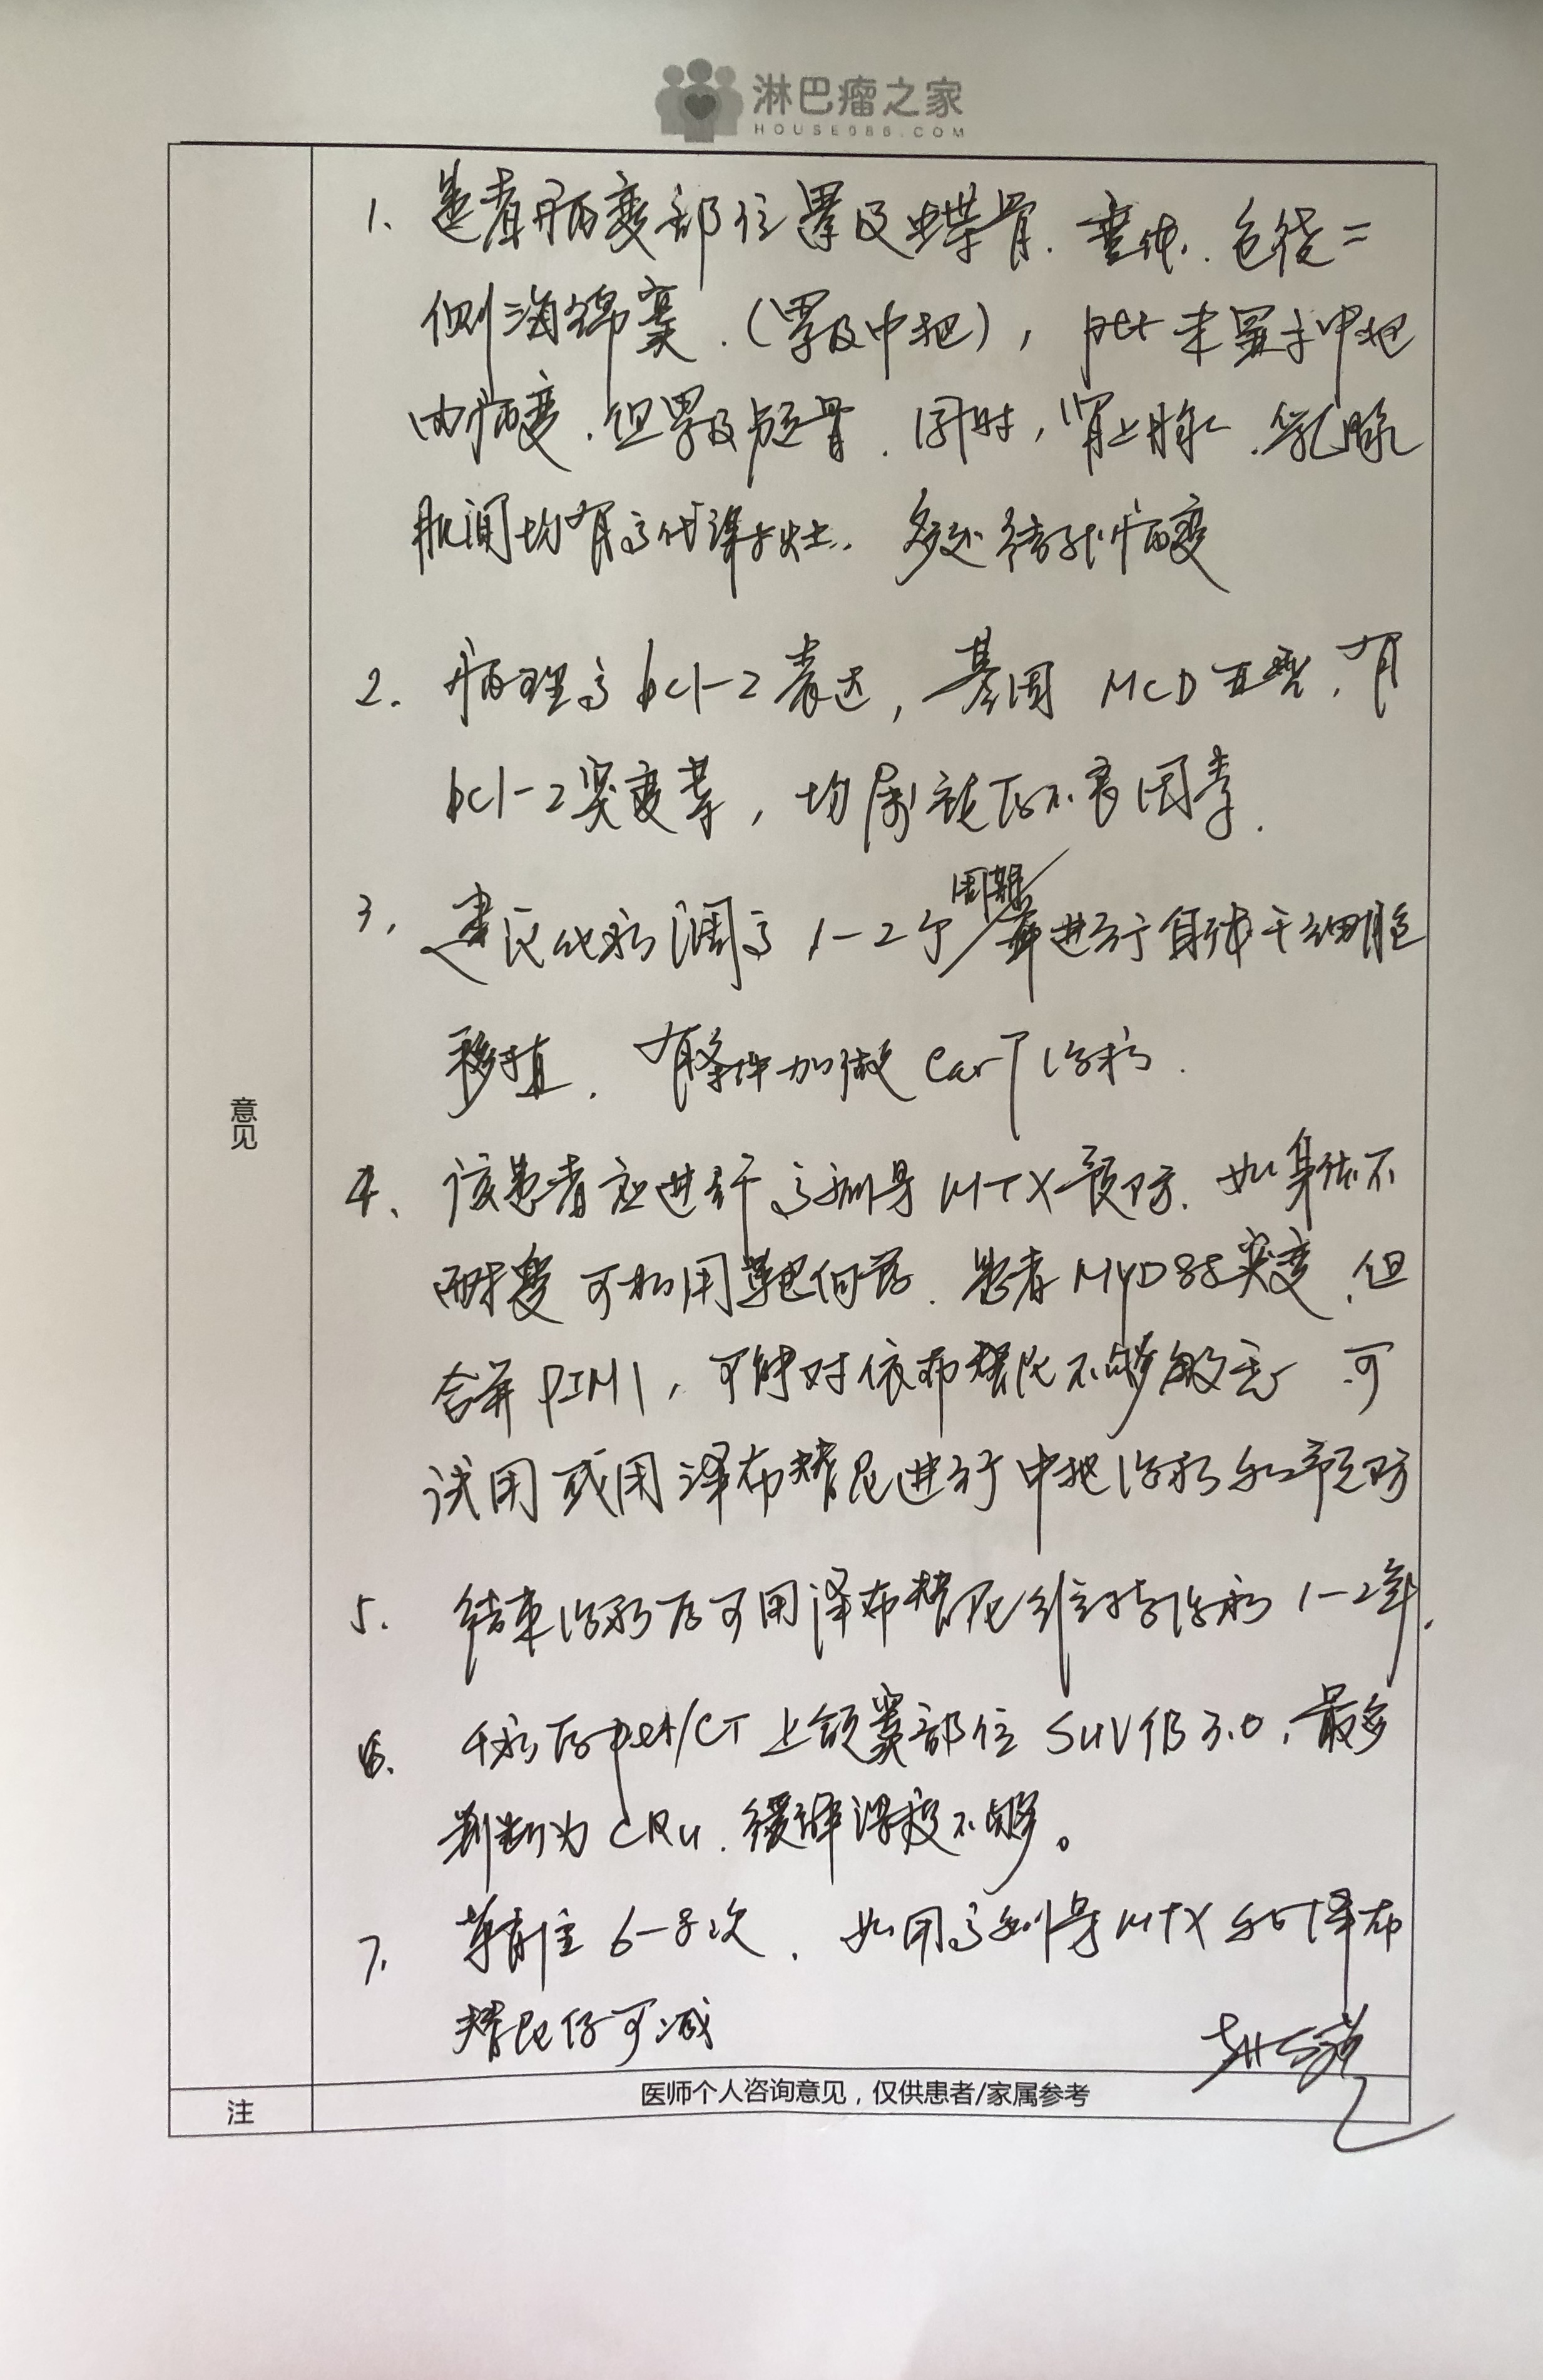 淋巴瘤之家
HOUSE086.COM
1. 患者病变部位累及蝶骨. 垂体. 包绕二
侧海绵窦. (累及中枢), pet未显示中枢
内病变. 但累及颅骨. 同时, 肾上腺. 乳腺
肌间均有高代谢灶. 多处结外病变
2. 病理高bcl-2表达, 基因 MCD亚型, 有
bcl-2突变等, 均属预后不良因素.
3, 建议化疗1-2个周期 进行自体干细胞
移植. 有条件加做CarT治疗.
意见
4、该患者应进行高剂量MTX预防. 如身体不
耐受可利用靶向药. 患者MYD88突变, 但
合并PIM1, 可能对依布替尼不够敏感 可
试用或用泽布替尼进行中枢治疗和预防
5. 结束治疗后可用泽布替尼维持治疗1-2年.
6. 化疗后pet/CT上颌窦部位SUV仍3.0, 最多
判断为CRu. 缓解深度不够。
7. 鞘注6-8次. 如用高剂量MTX和泽布
替尼仔可减
注
医师个人咨询意见，仅供患者/家属参考